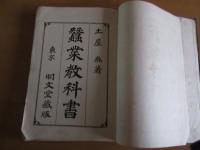 土屋泰著
蠶業敎科書
東京 明文堂藏版